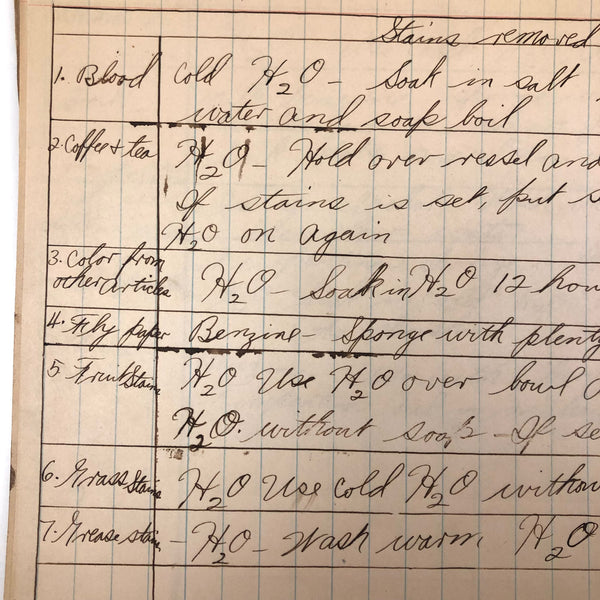 Stains removed
1. Blood cold H2O - Soak in salt
water and soap boil
2. Coffee & tea H2O - Hold over vessel and
If stains is set, put s
H2O on again
3. Color from
other articles H2O - Soak in H2O 12 hou
4. Fly paper Benzine - Sponge with plenty
5 Fruit Stains H2O Use H2O over bowl
H2O. without soap - If se
6. Grass Stains H2O Use cold H2O withou
7. Grease stain - H2O - Wash warm H2O